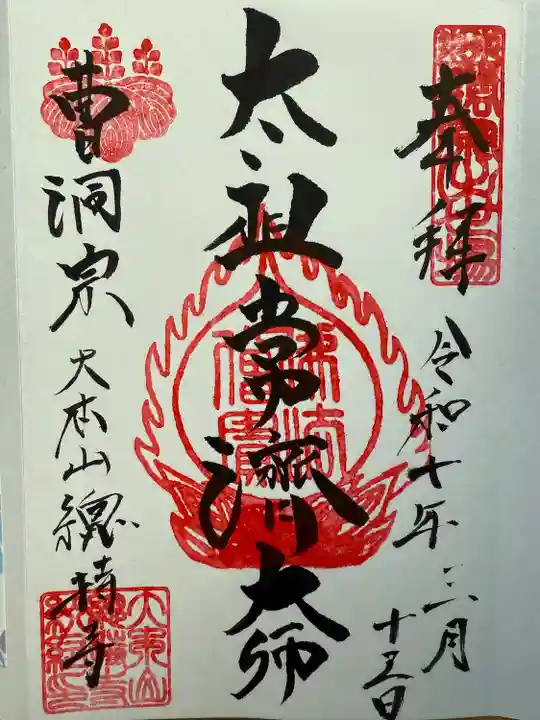 奉拝
令和十年三月
十五日
太祖常濟大師
曹洞宗大本山總持寺